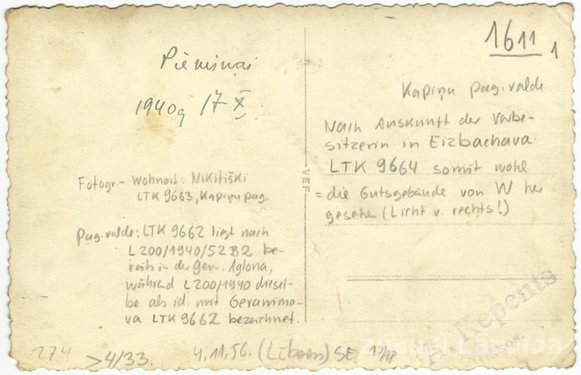 1611 1
Piemiņai
1940g 17 X.
Kapiņu pag. valde
Nach Auskunft der Vorbe-
sitzerin in Eizbachava
LTK 9664 somit wohl
= die Gutsgebäude von W her
gesehen (Licht v. rechts!)
VEF
Fotogr.-Wohnort: Nikitiški
LTK 9663, Kapiņu pag.
Pag. valde: LTK 9662 liegt nach
L200/1940/52B2 be-
reits in der Gem. Aglona,
während L200/1940 diesel-
be als id. mit Geranimo-
va LTK 9662 bezeichnet.
A. Repents
274 >4/33. 4.11.56. (Lībaus) SE